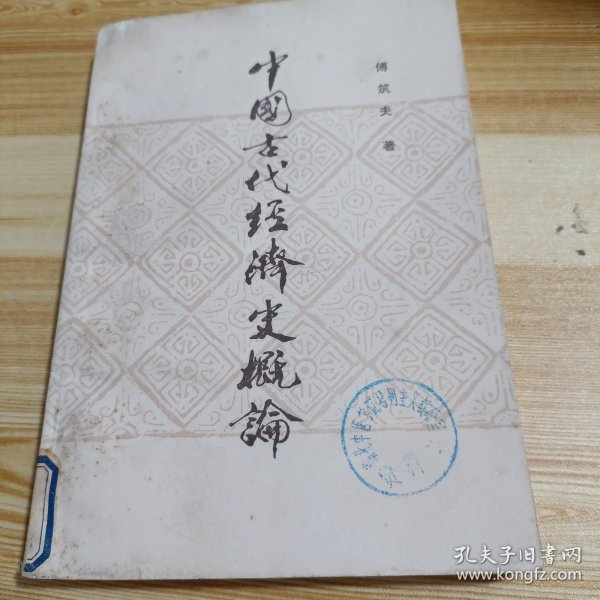 中國古代经濟史概論
傅筑夫 著
孔夫子旧书网
www.kongfz.com